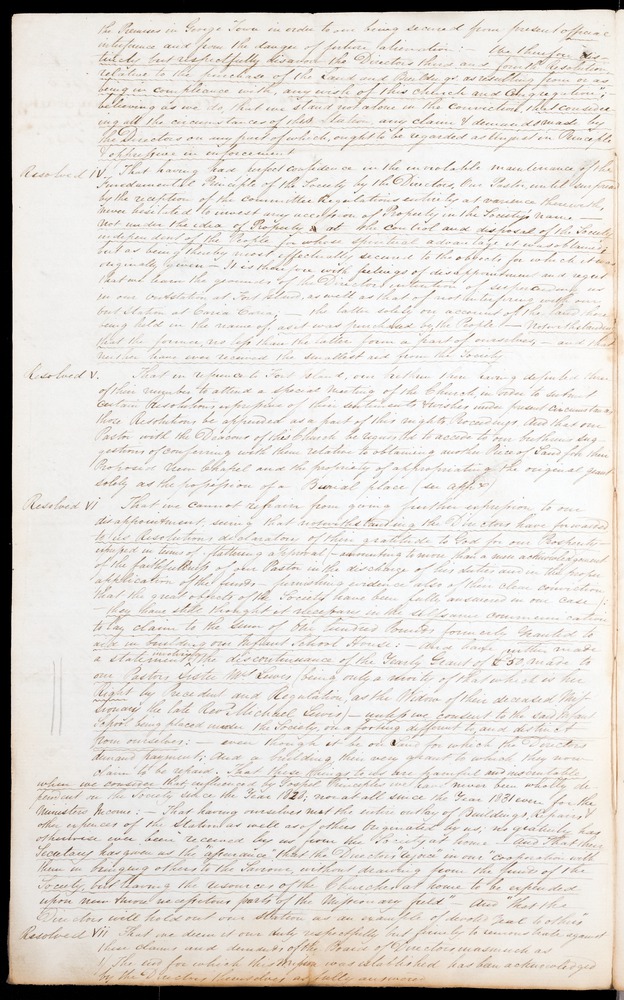 the Premises in George Town in order to our being secured from present official
interference and from the danger of future alienation: — We therefore
but respectfully disavow the Directors third and fourth Resolutions
relative to the purchase of the Land and Buildings as resulting from or as
being in compliance with, any wish of this church and Congregation,
believing as we do, that we stand not alone in the conviction that consider-
ing all the circumstances of this Station any claim & demand made by
the Directors on any part of which, ought to be regarded as unjust in Principle
& oppressive in enforcement
Resolved IV. That having had perfect confidence in the inviolable maintenance of the
Fundamental Principle of the Society by the Directors, Our Pastor, until surprised
by the reception of the committee Regulations entirely at variance therewith,
never hesitated to invest any accession of Property in the Society's name —
not under the idea of Property at the control and disposal of the Society
independent of the People for whose spiritual advantage it was obtained
but as being thereby most effectually secured to the objects for which it was
originally given — It is therefore with feelings of disappointment and regret
that we learn the grounds of the Directors intention of superseding us
in our Outstation at Fort Island, as well as that of not interfering with our
out Station at Caria Caria; — the latter solely on account of the land there
being held in the name of as it was purchased by the People — Notwithstanding
that the former, no less than the latter form a part of ourselves, — and that
neither have ever received the smallest aid from the Society
Resolved V. That in reference to Fort Island, our brethren there having deputed three
of their number to attend a special meeting of the Church, in order to submit
certain Resolutions expressive of their sentiments & wishes under present circumstances
those Resolutions be appended as a part of this nights Proceedings And that our
Pastor with the Deacons of this Church be requested to accede to our brethrens sug-
gestions of conferring with them relative to obtaining another Piece of Land for their
Proposed New Chapel and the propriety of appropriating the original grant
solely as the possession of a Burial place (see appx)
Resolved VI That we cannot refrain from giving further expression to our
disappointment, seeing that notwithstanding the Directors have forwarded
to us Resolutions declaratory of their gratitude to God for our Prosperity —
couched in terms of flattering approval — amounting to more than a mere acknowledgement
of the faithfulness of our Pastor in the discharge of his duties and in the proper
application of the funds — furnishing evidence also of their clear conviction
that the great objects of the Society have been fully answered in our case;
— they have still thought it necessary in the selfsame communication
to lay claim to the Sum of One hundred Pounds formerly Granted to
aid in building our Infant School House: — And have further made
a statement involving the discontinuance of the Yearly Grant of £50 made to
our Pastors Sister Mrs Lewis (being only a moiety of that which is her
Right by Precedent and Regulation, as the Widow of their deceased Mis-
sionary the late Revd Michael Lewis) — unless we consent to the said Infant
School being placed under the Society, on a footing different to, and distinct
from ourselves: — even though it be on Land for which the Directors
demand payment; And a building, their very grant to which they now
claim to be repaid; That these things to us are painful and inscrutable
when we consider that influenced by Gospel Principles we have never been wholly de-
pendent on the Society since the Year 1828, nor at all since the Year 1831 even for the
Ministers Income: — That having ourselves met the entire outlay of Buildings, Repairs &
other expences of the Station as well as of others originated by us; no gratuity has
otherwise ever been received by us from the Society at home — And that their
Secretary has given us the "assurance" that the Directors rejoice in our "cooperation with
them in bringing others to the Saviour, without drawing from the funds of the
Society, but leaving the resources of the Churches at home to be expended
upon new & more necessitous parts of the Missionary field" — And "that the
Directors will hold out our station as an example of devoted zeal to others"
Resolved VII That we deem it our duty respectfully but firmly to remonstrate against
these claims and demands of the Board of Directors inasmuch as
1. The end for which this Mission was established has been acknowledged
by the Directors themselves as fully answered